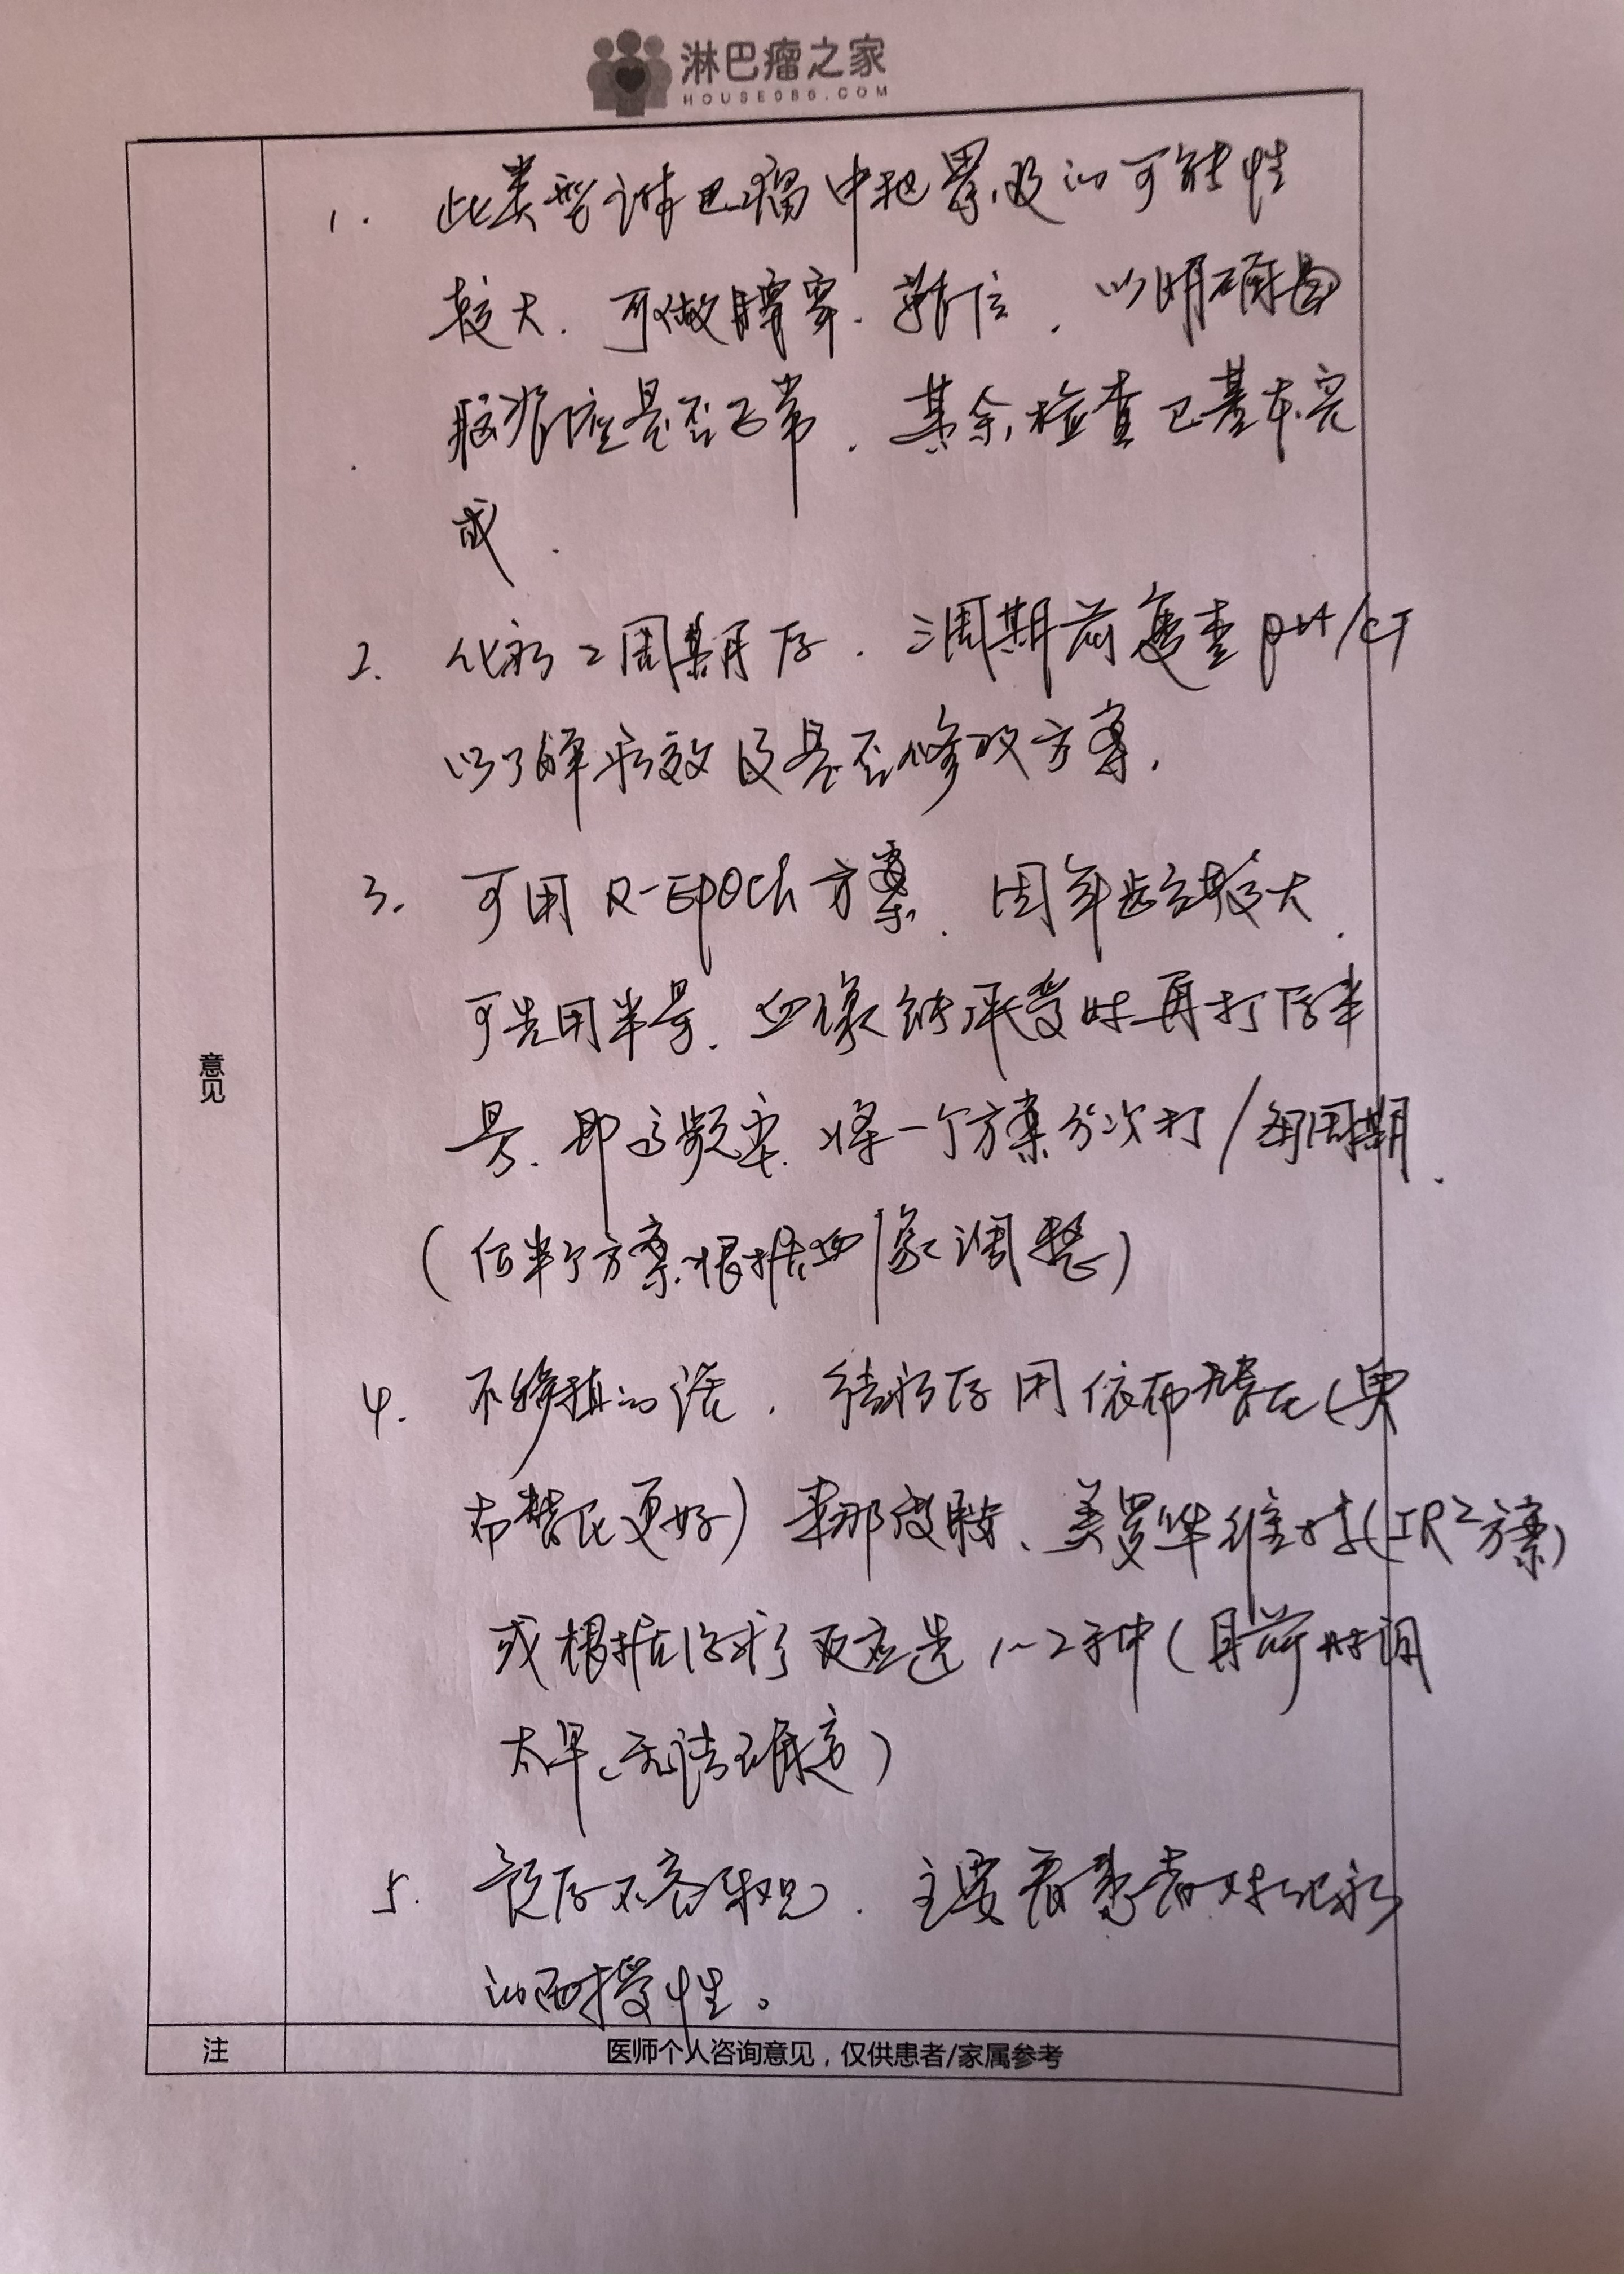 淋巴瘤之家
HOUSE086.COM
1. 此类型淋巴瘤中枢累及的可能性
较大. 可做腰穿. 以明确
脑是否正常. 其余检查已基本完
成.
2. 化疗2周期后. 三周期前复查pet/CT
以了解疗效及是否修改方案.
3. 可用R-EPOCh方案. 因年龄较大.
可先用半量. 血象能承受时再打后半
量. 即高频率. 将一个方案分次打/每周期.
(后半个方案根据血象调整)
4. 不移植的话. 结疗后用依布替尼(奥
布替尼更好) 来那度胺、美罗华维持(IR²方案)
或根据治疗反应选1~2种(目前时间
太早、无法确定)
5. 预后不容乐观. 主要看患者对化疗
的耐受性。
意见
注 医师个人咨询意见，仅供患者/家属参考